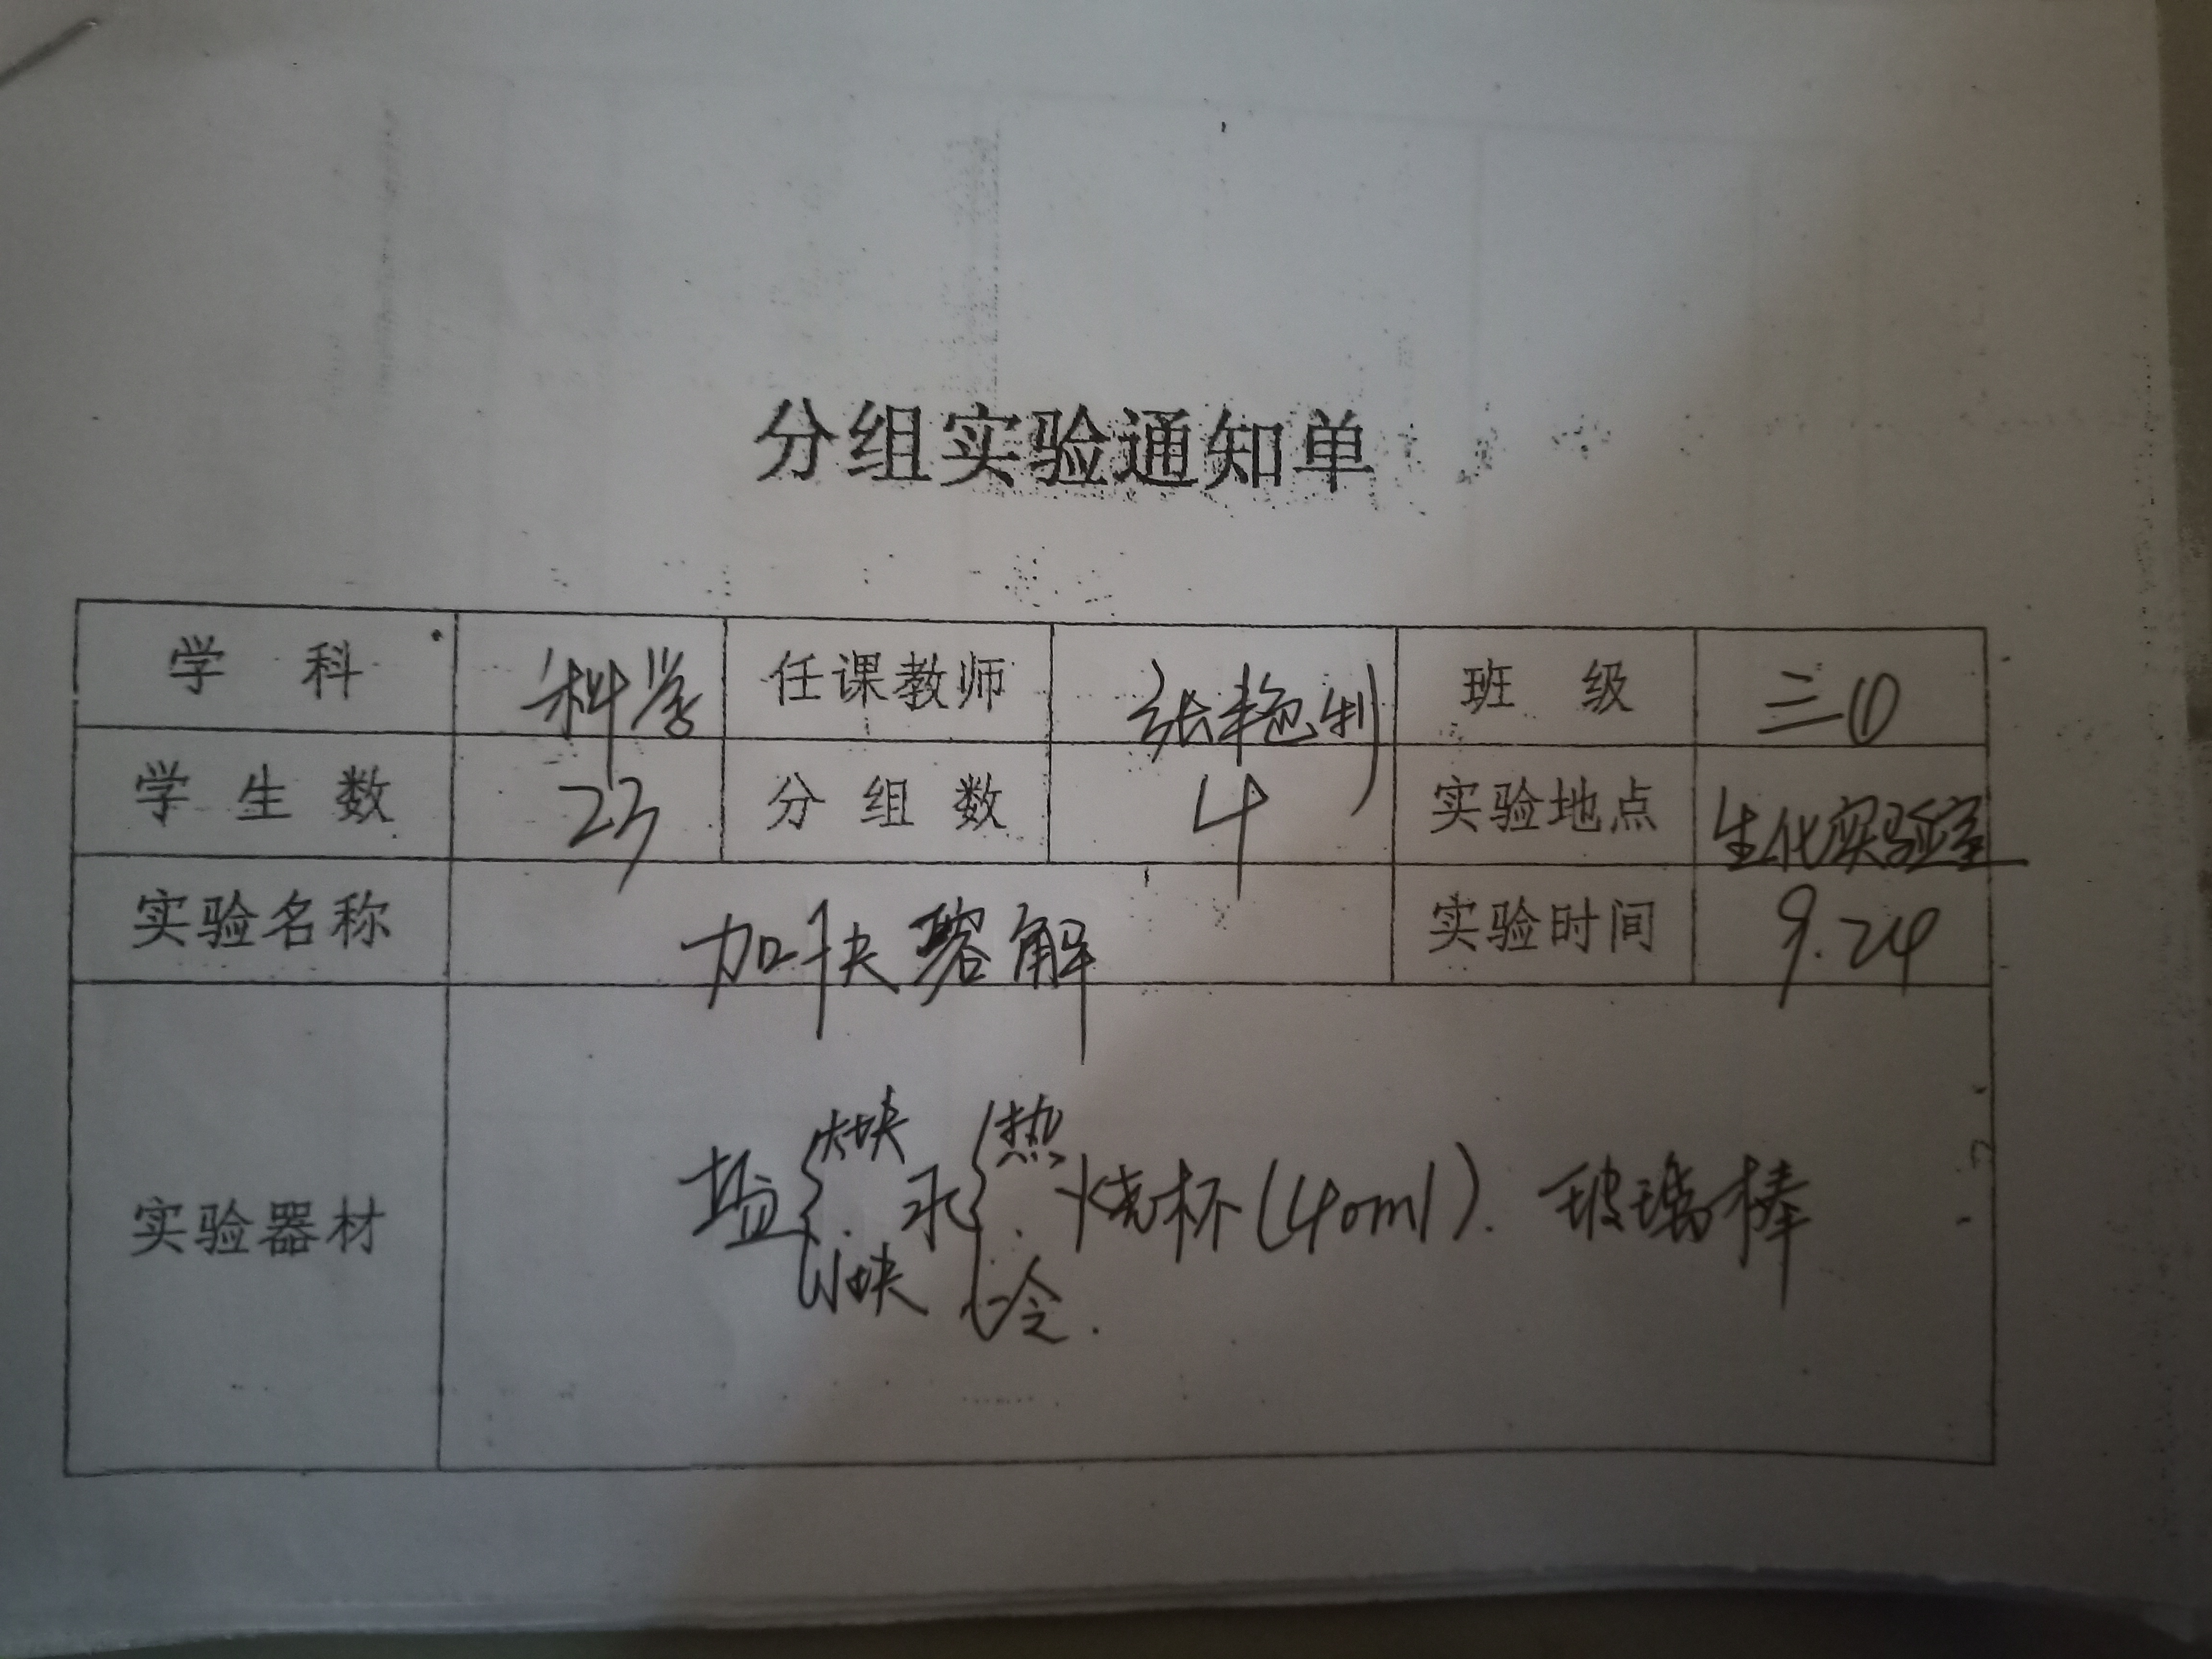 分组实验通知单
学 科 科学 任课教师 张艳利 班 级 三①
学 生 数 23 分 组 数 4 实验地点 生化实验室
实验名称 加快溶解 实验时间 9.24
大块 热
实验器材 盐{ . 水{ . 烧杯(40ml). 玻璃棒
小块 冷.